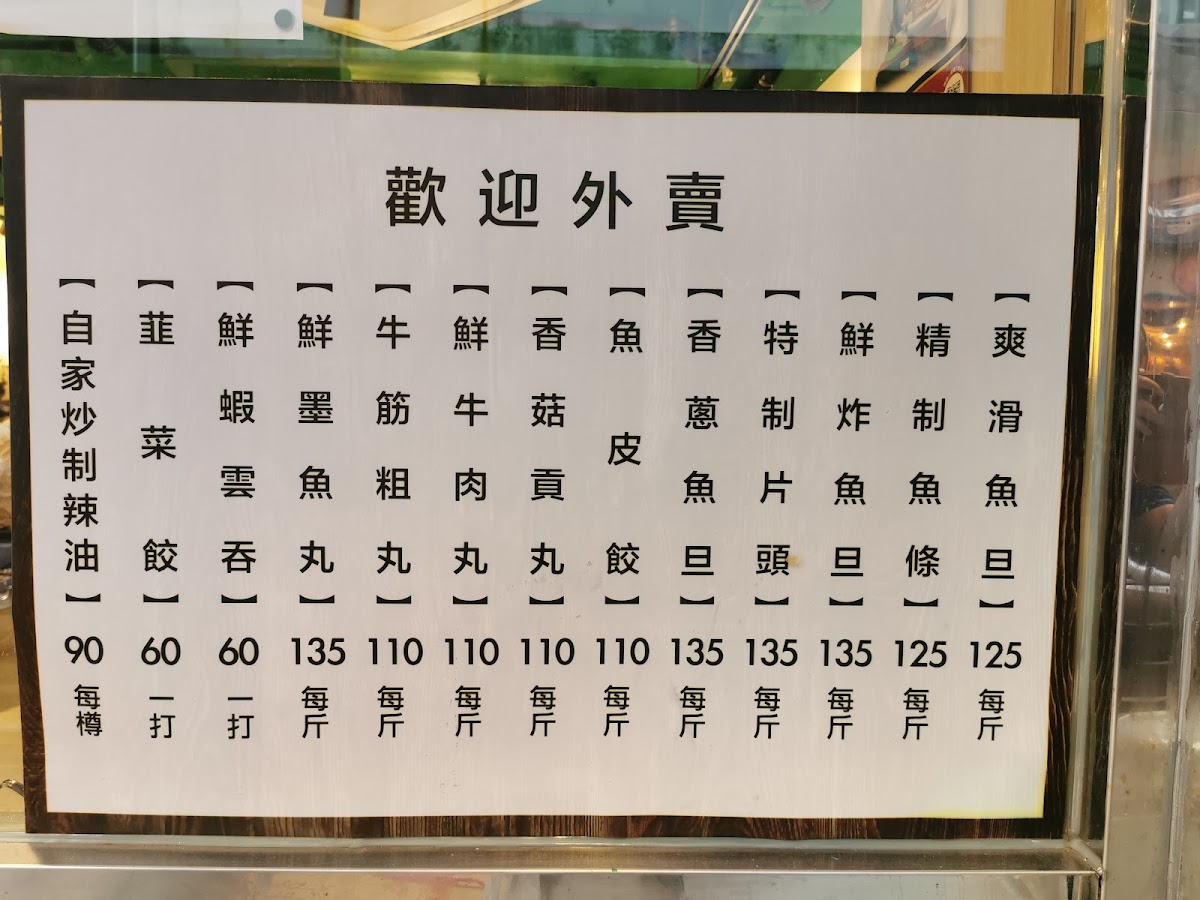 歡迎外賣
【爽滑魚旦】125每斤
【精制魚條】125每斤
【鮮炸魚旦】135每斤
【特制片頭】135每斤
【香蔥魚旦】135每斤
【魚皮餃】110每斤
【香菇貢丸】110每斤
【鮮牛肉丸】110每斤
【牛筋粗丸】110每斤
【鮮墨魚丸】135每斤
【鮮蝦雲吞】60一打
【韮菜餃】60一打
【自家炒制辣油】90每樽